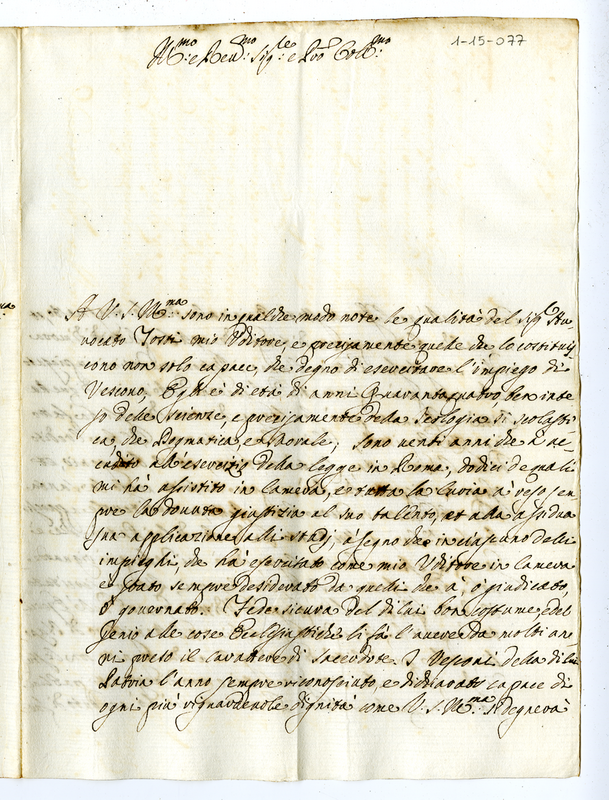 1-15-077
Ill.mo e Rev.mo Sig.re e P.ron Coll.mo
A V. S. Ill.ma sono in qualche modo note le qualità del Sig.r Av
vocato Tosti mio Uditore, e precisamente quelle che lo costitui
scono non solo capace, che degno di esercitare l'impiego di
Vescovo, Egli è di età di anni Quarantaquatro ben inte
so delle scienze, e precisamente della Teologia sì scolasti
ca che Dogmatica, e Morale; sono venti anni che à ac
cudito all'esercizio della legge in Roma, dodici de quali
mi hà assistito in camera, e tutta la Curia à reso sem
pre la dovuta giustizia al suo talento, et alla assidua
sua applicazione alli studj, à segno che in ciascuno delli
impieghi, che hà esercitato come mio Uditore in camera
è stato sempre desiderato da quelli che à, ò giudicato,
ò governato. Fede sicura del di lui bon costume, e del
genio alle cose Ecclesiastiche li fà l'avere da molti an
ni preso il carattere di sacerdote. I Vescovi della di lui
Patria l'anno sempre riconosciuto, e dichiarato capace di
ogni più riguardevole dignità come V. S. Ill.ma si degnerà